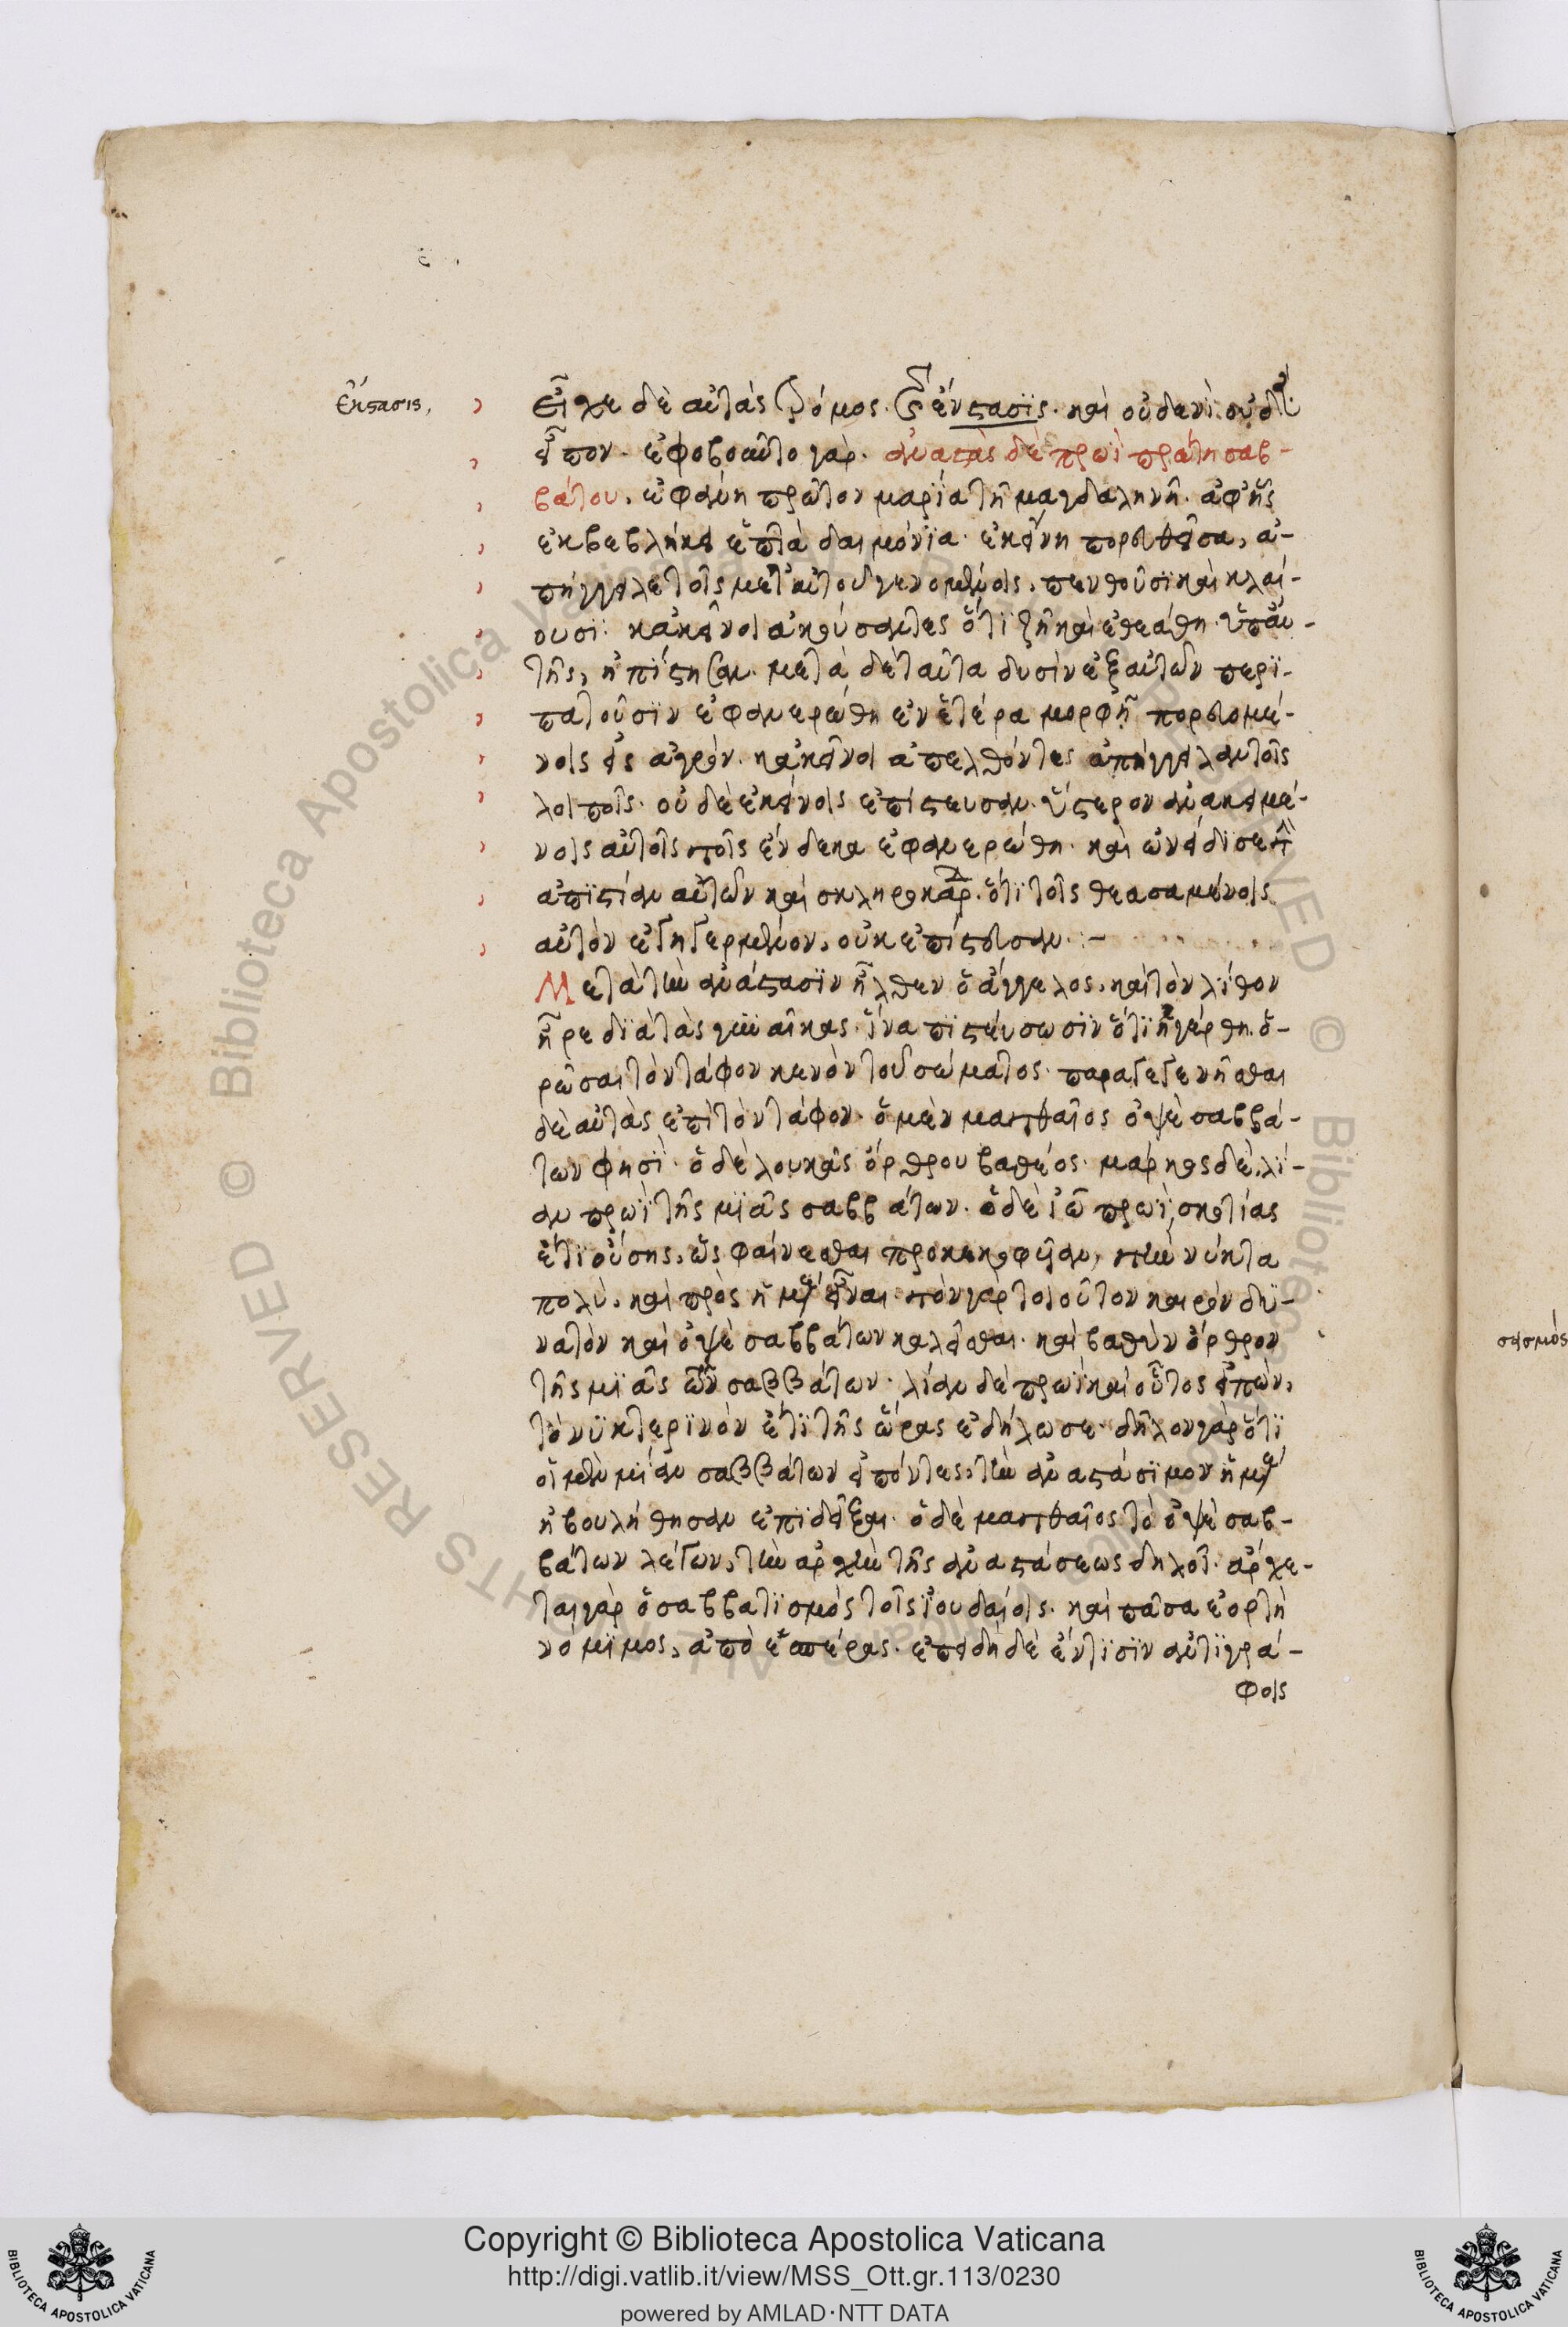 ἔκστασις,
εἶχε δὲ αὐτὰς τρόμος καὶ ἔνστασϊς. καὶ οὐδενὶ οὐδὲν
εἶπον. ἐφοβοῦντο γάρ. ἀναστὰς δὲ πρωῒ πρώτη σαβ-
βάτου, ἐφάνη πρῶτον μαρία τῆ μαγδαληνῆ. ἀφ' ἧς
ἐκβεβλήκει ἑπτὰ δαιμόνϊα. ἐκείνη πορευθεῖσα, ἀ-
πήγγειλε τοῖς μετ' αὐτοῦ γενομένοις, πενθοῦσϊ καὶ κλαί-
ουσϊ. κἀκεῖνοι ἀκούσαντες ὅτϊ ζῆ καὶ ἐθεάθη ὑπ' αὐ-
τῆς, ἠπίστησαν. μετὰ δὲ ταῦτα δυσὶν ἐξ αὐτῶν περϊ-
πατοῦσϊν ἐφανερώθη ἐν ἑτέρα μορφῆ πορευομέ-
νοις εἰς ἀγρόν. κἀκεῖνοι ἀπελθόντες ἀπήγγειλαν τοῖς
λοιποῖς. οὐδὲ ἐκείνοις ἐπίστευσαν. ὕστερον ἀνακειμέ-
νοις αὐτοῖς τοῖς ἕνδεκα ἐφανερώθη. καὶ ὠνείδϊσε τὴν
ἀπϊστίαν αὐτῶν καὶ σκληροκαρδ. ὅτϊ τοῖς θεασαμένοις
αὐτὸν ἐγηγερμένον, οὐκ ἐπίστευσαν. :-
Μετὰ τὴν ἀνάστασϊν ἦλθεν ὁ ἄγγελος, καὶ τὸν λίθον
ἦρε δϊὰ τὰς γυναῖκας. ἵνα πϊστεύσωσϊν ὅτϊ ἠγέρθη. ὁ-
ρῶσαι τὸν τάφον κενὸν τοῦ σώματος. παραγεγενῆσθαι
δὲ αὐτὰς ἐπὶ τὸν τάφον. ὁ μὲν ματθαῖος ὀψὲ σαββά-
των φησϊ. ὁ δὲ λουκᾶς ὄρθρου βαθέος. μάρκος δὲ, λί-
αν πρωῒ τῆς μϊᾶς σαββάτων. ὁ δὲ ἰω πρωῒ, σκοτίας
ἔτϊ οὔσης, ὡς φαίνεσθαι προκεκοφεῖαν, τὴν νύκτα
πολύ, καὶ πρὸς ἡμέραν εἶναι. τὸν γὰρ τοιοῦτον καιρὸν δϋ-
νατὸν καὶ ὀψὲ σαββάτων καλεῖσθαι. καὶ βαθὺν ὄρθρον
τῆς μϊᾶς τῶν σαββάτων. λίαν δὲ πρωῒ καὶ οὗτος εἰπὼν,
τὸ νϋκτερϊνὸν ἔτϊ τῆς ὥρας ἐδήλωσε. δῆλον γὰρ ὅτϊ
οἱ μὲν μϊαν σαββάτων εἰπόντες, τὴν ἀναστάσϊμον ἡμέραν
ἠβουλήθησαν ἐπϊδεῖξαι. ὁ δὲ ματθαῖος τὸ ὀψὲ σαβ-
βάτων λέγων, τὴν ἀρχὴν τῆς ἀναστάσεως δηλοῖ. ἄρχε-
ται γὰρ ὁ σαββατϊσμὸς τοῖς ἰουδαίοις. καὶ πᾶσα ἑορτὴ
νόμϊμος, ἀπὸ ἑσπέρας. ἐπειδὴ δὲ ἔν τϊσϊν ἀντϊγρά-
φοις
σεισμός
Copyright © Biblioteca Apostolica Vaticana
http://digi.vatlib.it/view/MSS_Ott.gr.113/0230
powered by AMLAD·NTT DATA
BIBLIOTECA APOSTOLICA VATICANA
BIBLIOTECA APOSTOLICA VATICANA